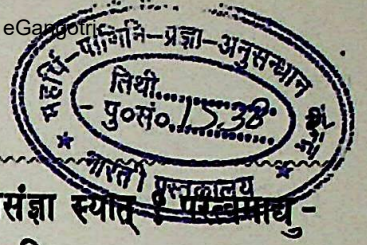 eGangotri
महर्षि-पाणिनि-प्रज्ञा-अनुसन्धान
तिथी............
पु०सं०.1538
भारती पुस्तकालय
संज्ञा स्यात्